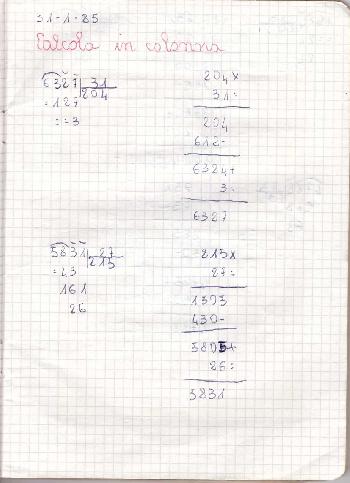 31-1-85
Calcola in colonna
6327 31
=127 204
==3
204x
31=
204
612-
6324+
3=
6327
5831 27
=43 215
161
26
215x
27=
1505
430-
5805+
26=
5831